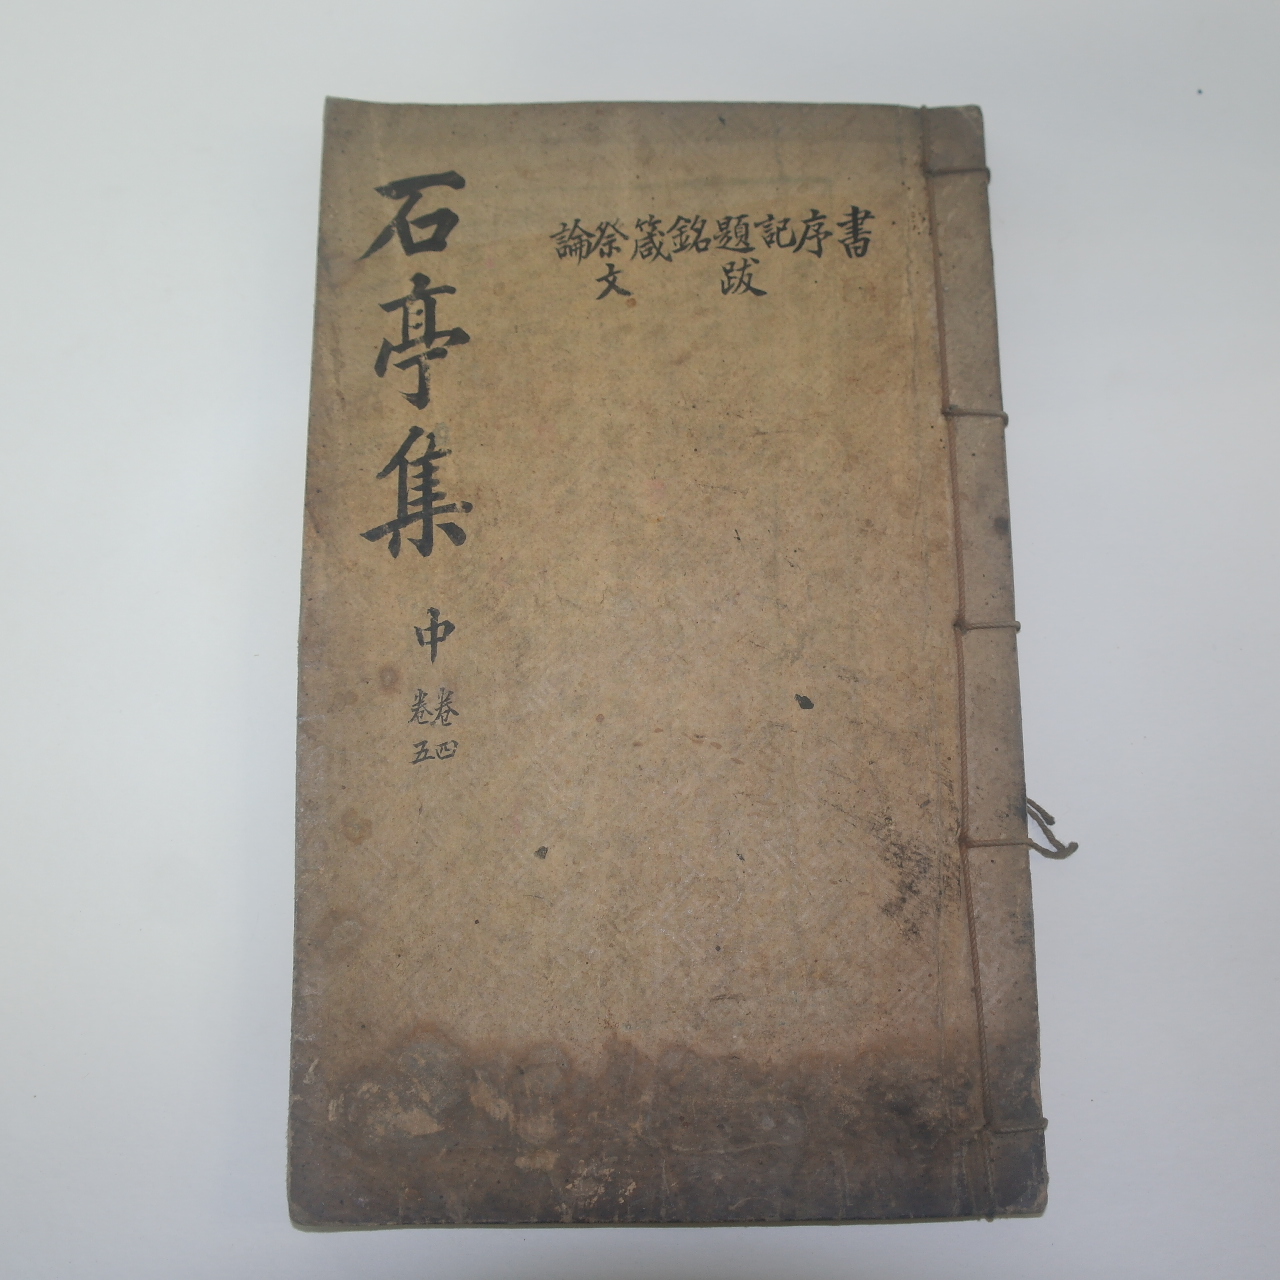 書
序
記
題跋
銘
箴
祭文
論
石亭集 中
卷四
卷五